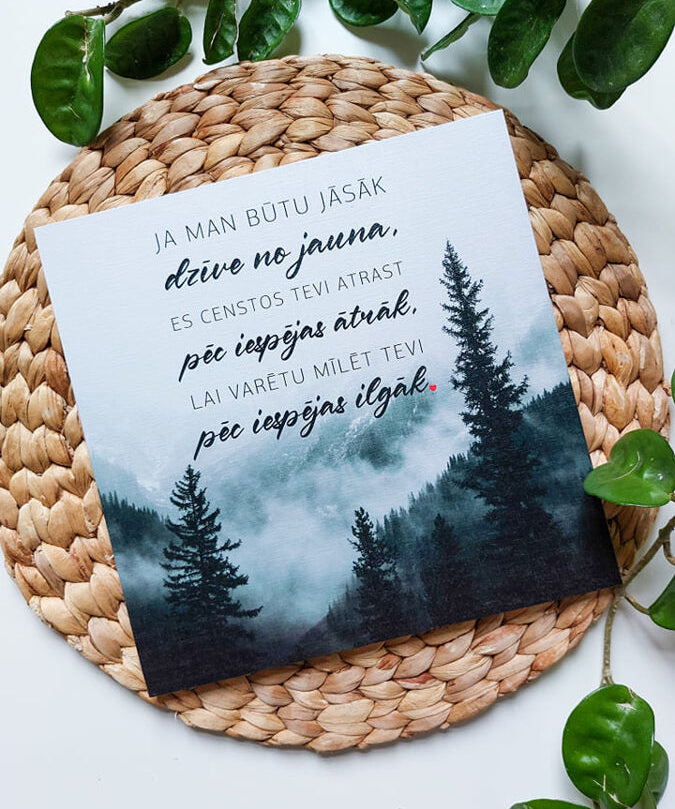 JA MAN BŪTU JĀSĀK
dzīve no jauna,
ES CENSTOS TEVI ATRAST
pēc iespējas ātrāk,
LAI VARĒTU MĪLĒT TEVI
pēc iespējas ilgāk.